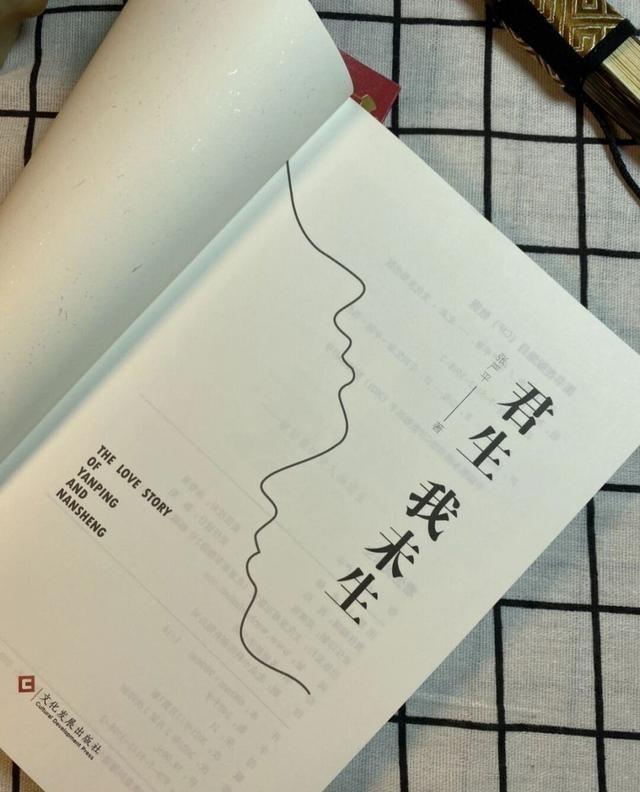 君生
我未生
张严平
著
THE LOVE STORY
OF
YANPING
AND
NANSHENG
文化发展出版社
Cultural Development Press